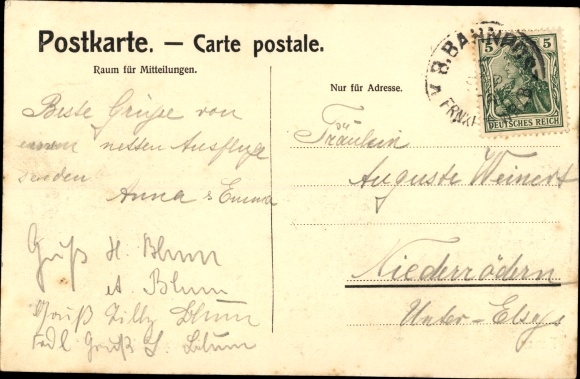 Postkarte. — Carte postale.
Raum für Mitteilungen.
Nur für Adresse.
5 5
DEUTSCHES REICH
B. BAHNPOST
Beste Grüße von
einem netten Ausfluge
senden
Anna & Emma
Gruß H. Blum
et Blum
Gruß Lilly Blum
Frdl Gruß S. Blum
Fräulein
Auguste Weinert
Niederrödern
Unter-Elsaß